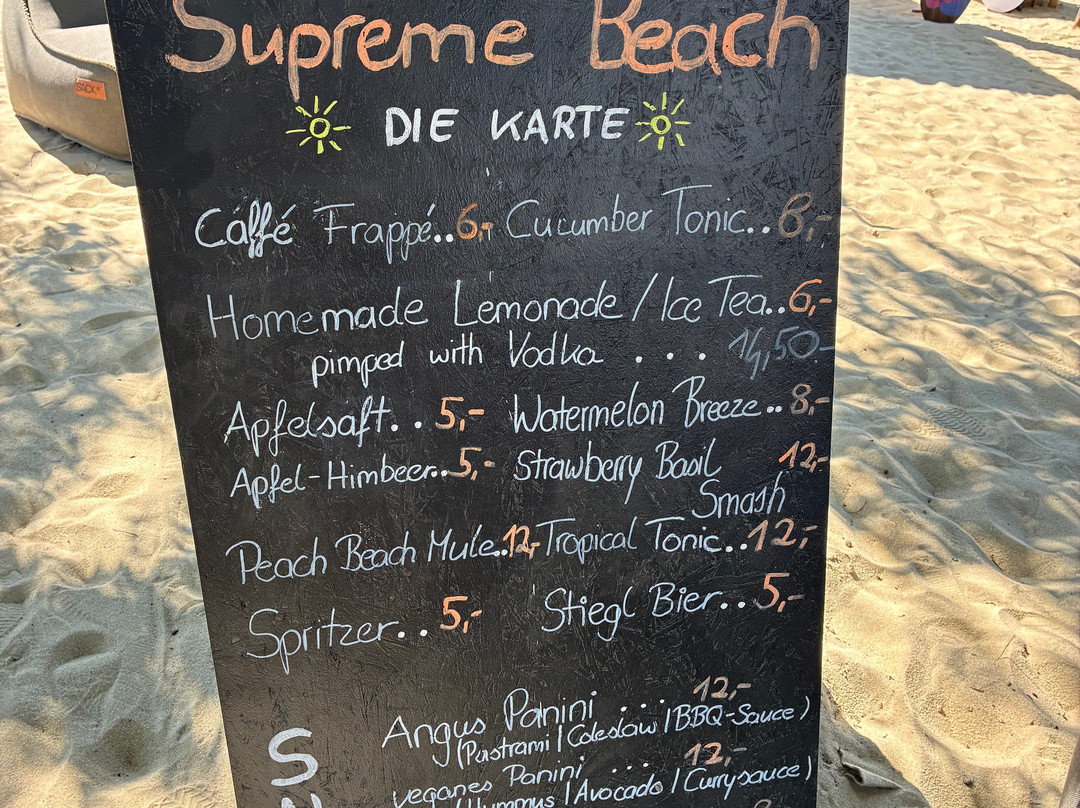 Supreme Beach
DIE KARTE
Caffé Frappé..6,- Cucumber Tonic..8,-
Homemade Lemonade / Ice Tea..6,-
pimped with Vodka ... 14,50.-
Apfelsaft..5,- Watermelon Breeze..8,-
Apfel-Himbeer..5,- Strawberry Basil 12,-
Smash
Peach Beach Mule..12,- Tropical Tonic..12,-
Spritzer..5,- Stiegl Bier..5,-
Angus Panini ... 12,-
(Pastrami | Coleslaw | BBQ-Sauce)
veganes Panini ... 12,-
(Hummus | Avocado | Currysauce)
S
SACK